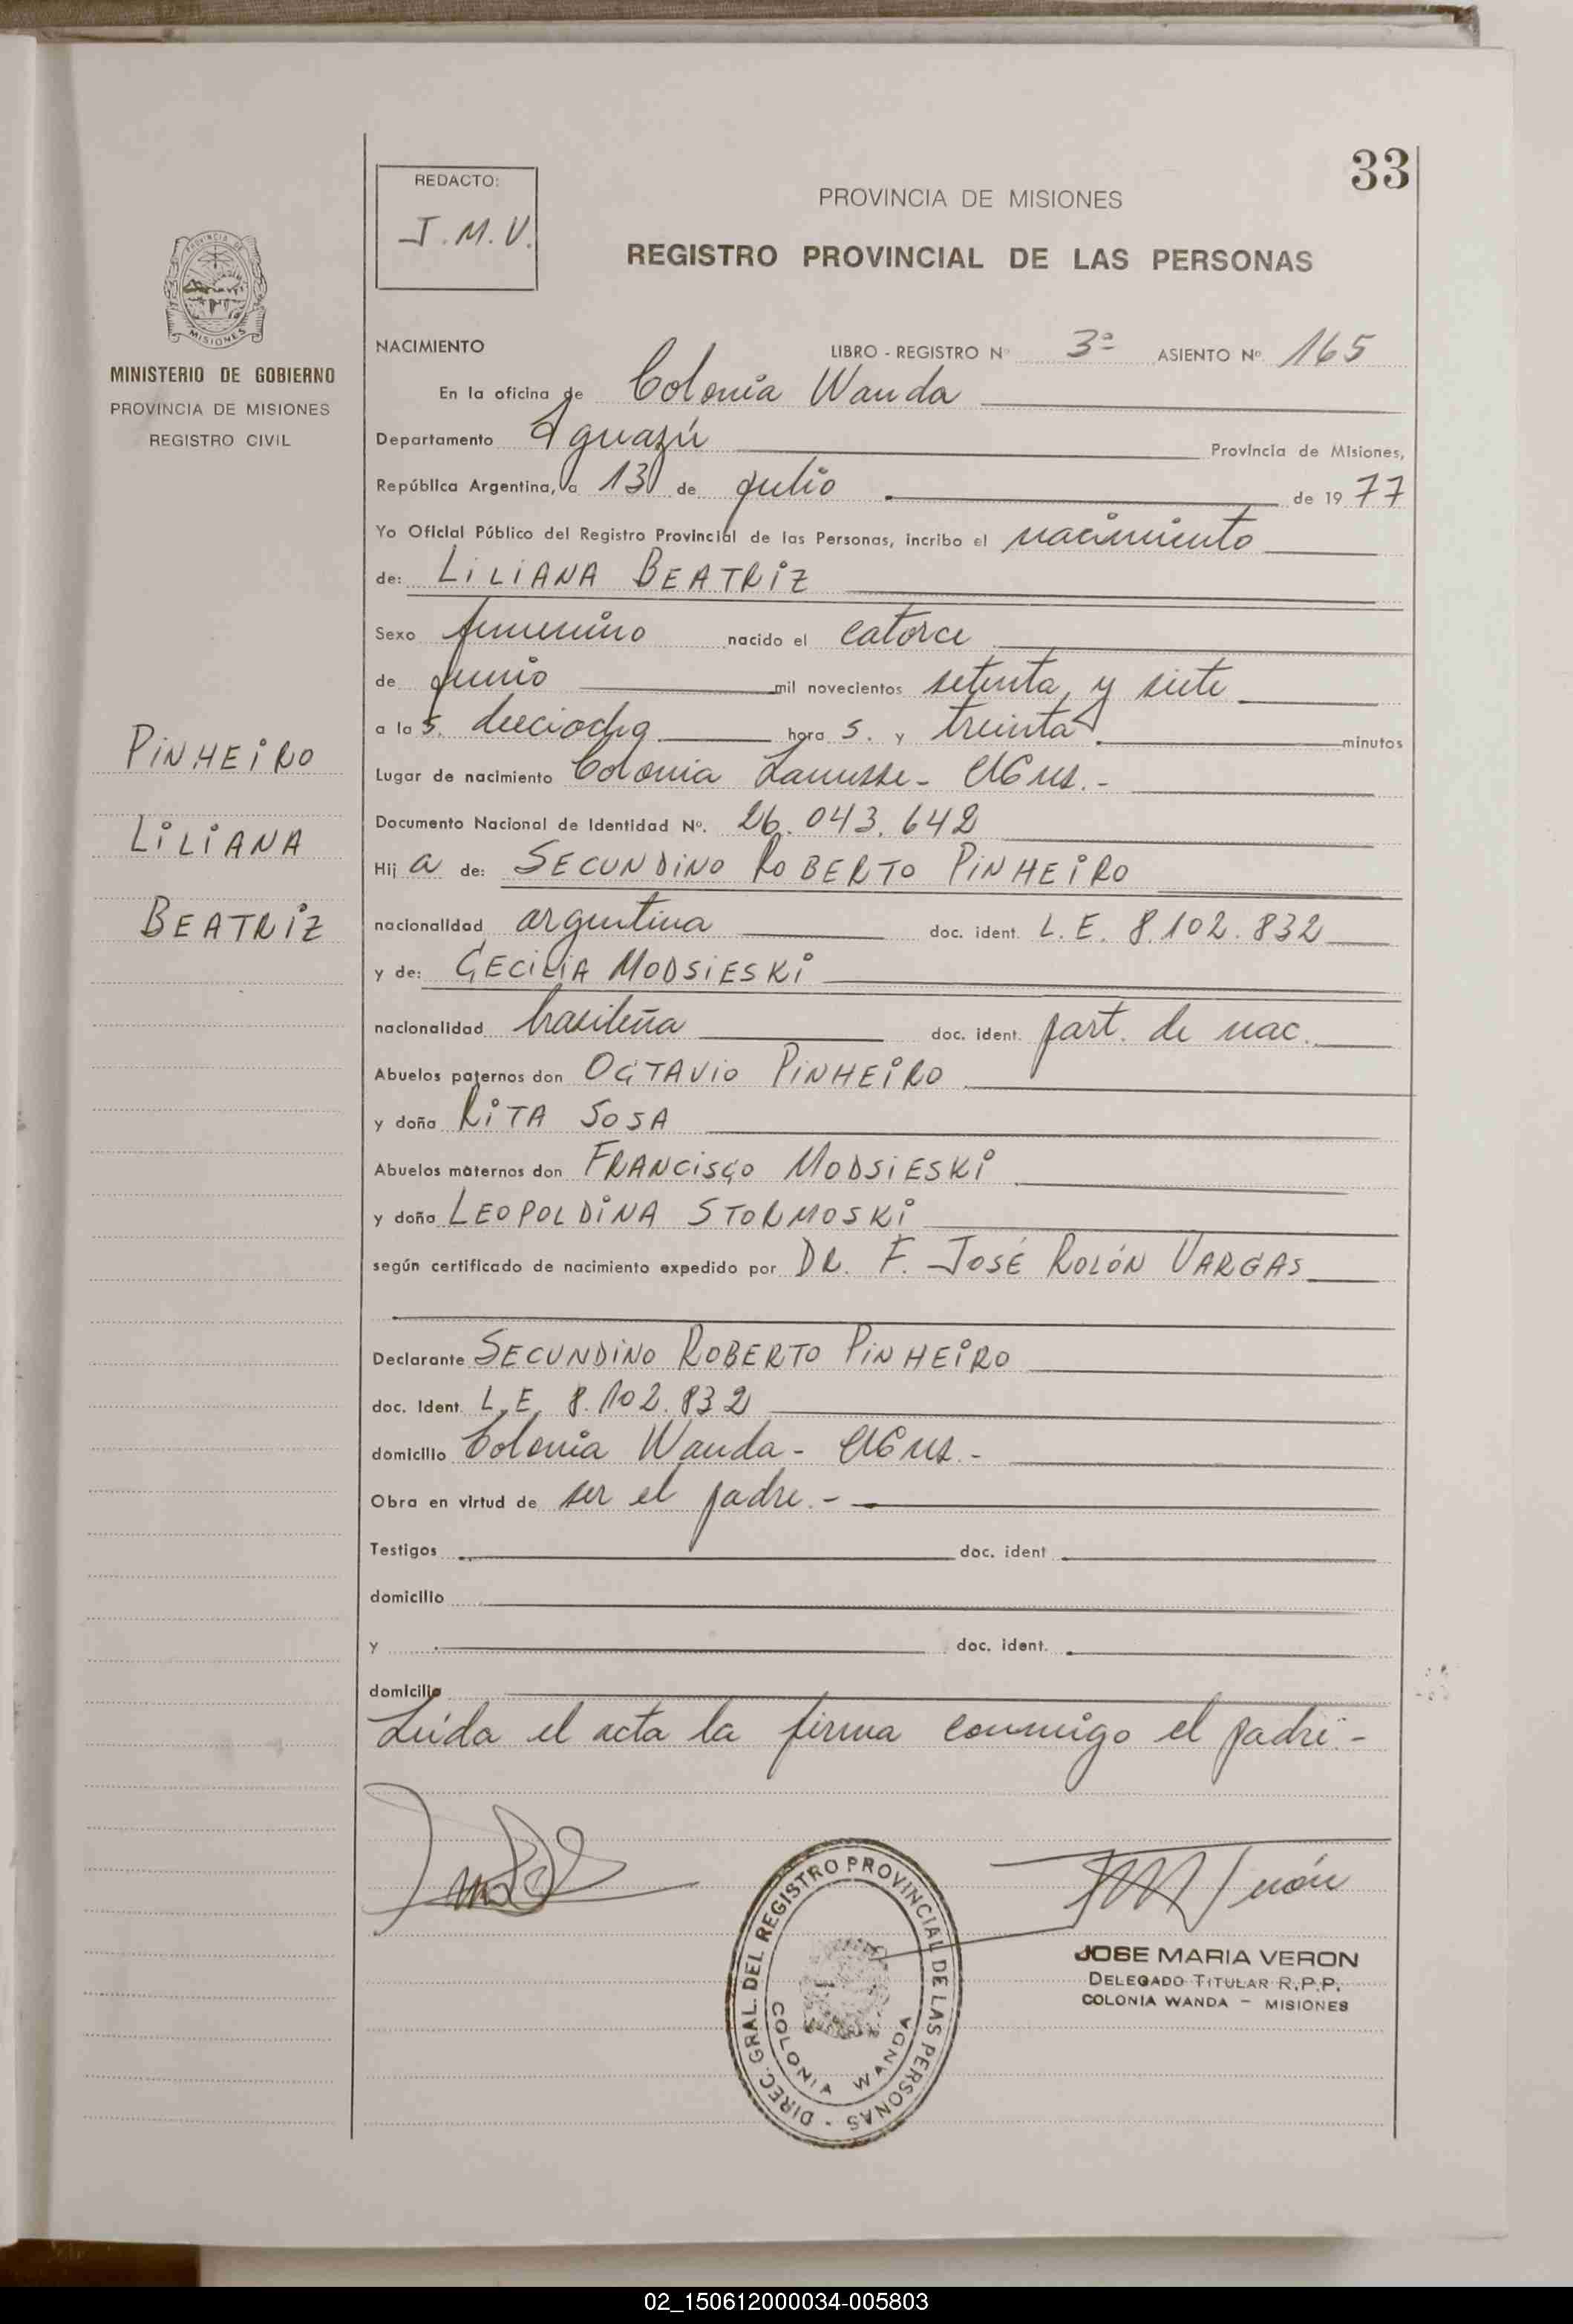 33
REDACTO:
J.M.V.
PROVINCIA DE MISIONES
REGISTRO PROVINCIAL DE LAS PERSONAS
PROVINCIA DE
MISIONES
MINISTERIO DE GOBIERNO
PROVINCIA DE MISIONES
REGISTRO CIVIL
PiNHEiRO
LiLiANA
BEATRiZ
NACIMIENTO LIBRO - REGISTRO Nº 3º ASIENTO Nº 165
En la oficina de Colonia Wanda
Departamento Iguazú Provincia de Misiones,
República Argentina, a 13 de julio de 1977
Yo Oficial Público del Registro Provincial de las Personas, incribo el nacimiento
de: LiLiANA BEATRiZ
Sexo femenino nacido el catorce
de junio mil novecientos setenta y siete
a las. dieciocho hora s. y treinta minutos
Lugar de nacimiento Colonia Lanusse -
Documento Nacional de Identidad Nº. 26.043.642
Hij a de: SECUNDiNO ROBERTO PiNHEiRO
nacionalidad argentina doc. ident. L.E. 8.102.832
y de: CECiLiA MODSiESKi
nacionalidad brasileña doc. ident. part. de nac.
Abuelos paternos don OCTAViO PiNHEiRO
y doña RiTA SOSA
Abuelos maternos don FRANCiSCO MODSiESKi
y doña LEOPOLDiNA STORMOSKi
según certificado de nacimiento expedido por DR. F. JOSÉ ROLÓN VARGAS
Declarante SECUNDiNO ROBERTO PiNHEiRO
doc. Ident. L.E. 8.102.832
domicilio Colonia Wanda -
Obra en virtud de ser el padre.-
Testigos doc. ident
domicilio
y doc. ident.
domicilio
Leída el acta la firma conmigo el padre.-
DIREC. GRAL. DEL REGISTRO PROVINCIAL DE LAS PERSONAS -
COLONIA WANDA
JOSE MARIA VERON
DELEGADO TITULAR R.P.P.
COLONIA WANDA - MISIONES
02_150612000034-005803